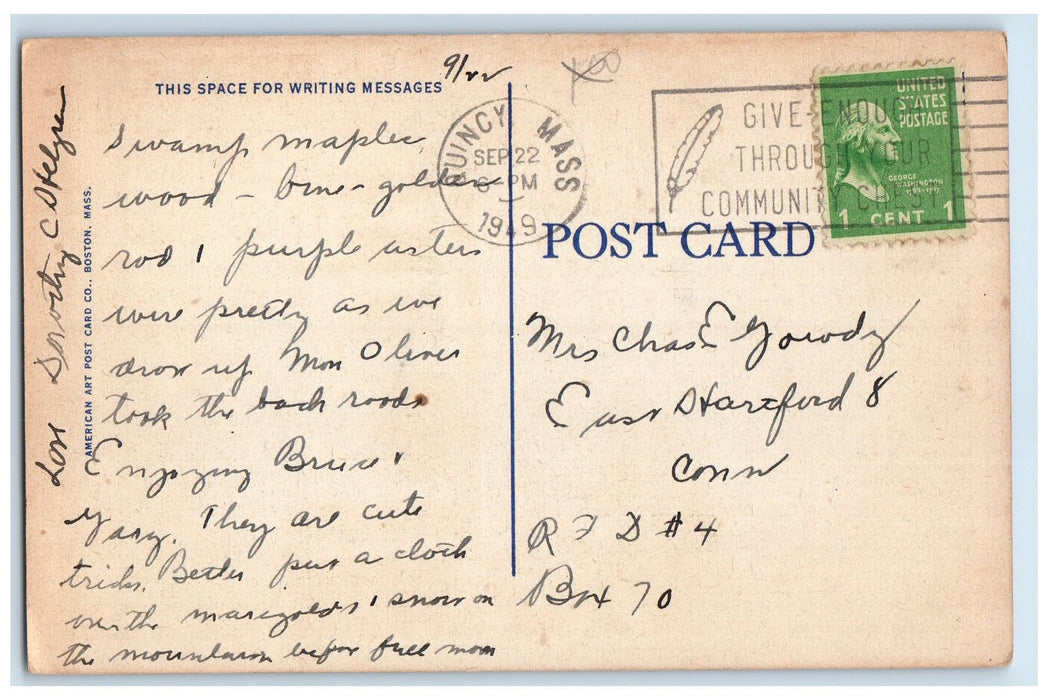 THIS SPACE FOR WRITING MESSAGES
9/22
Swamp maples,
wood - bine - golden
rod & purple asters
were pretty as we
drove up Mon Oliver
took the back roads
Enjoying Bruce &
Gary. They are cute
tricks. Better put a cloth
over the marigolds & snow on
the mountain before full moon
Love Dorothy C
AMERICAN ART POST CARD CO., BOSTON, MASS.
QUINCY MASS
SEP 22
PM
1949
GIVE ENOUGH
THROUGH YOUR
COMMUNITY CHEST
UNITED
STATES
POSTAGE
GEORGE
WASHINGTON
1789-1797
1 CENT 1
POST CARD
Mrs Chas E Gowdy
East Hartford 8
Conn
R F D #4
Box 70